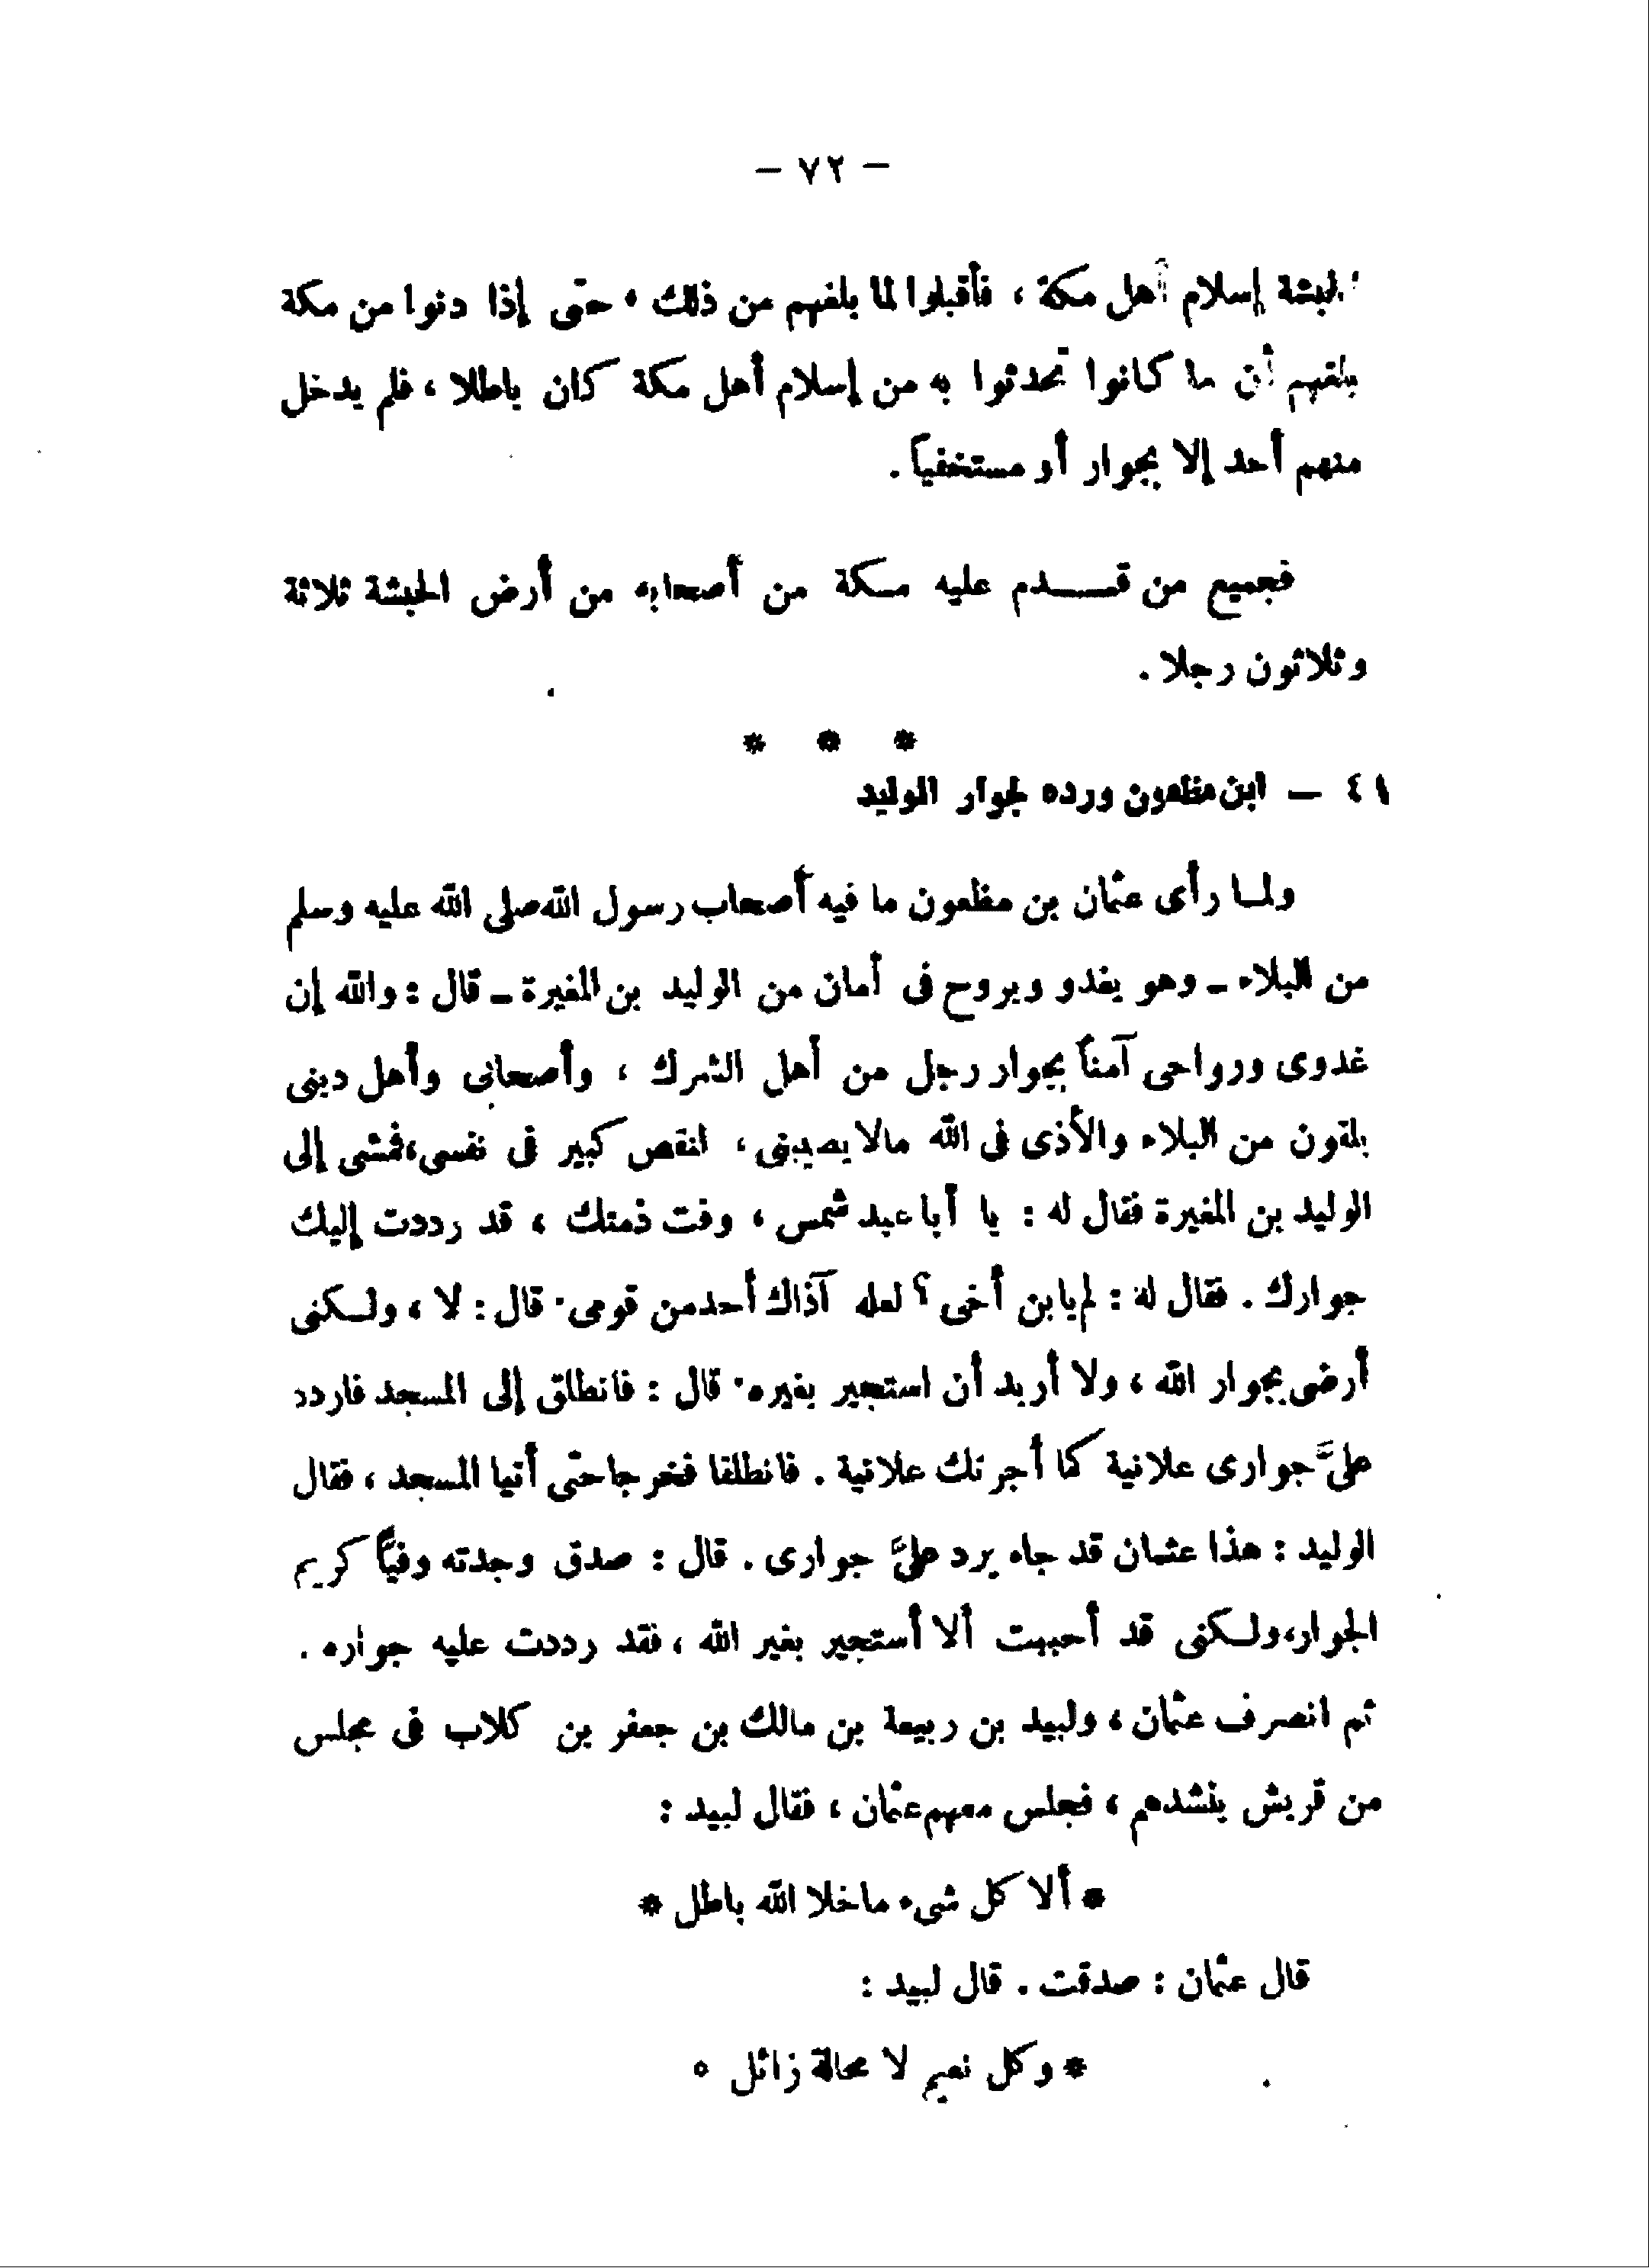 — ٧٢ —
الحبشة إسلام أهل مكة ، فأقبلوا لما بلغهم من ذلك ٠ حتى إذا دنوا من مكة
بلغهم أن ما كانوا تحدثوا به من إسلام أهل مكة كان باطلا ، فلم يدخل
منهم أحد إلا بجوار أو مستخفياً .
فجميع من قــدم عليه مكة من أصحابه من أرض الحبشة ثلاثة
وثلاثون رجلا .
* * *
٤١ — ابن مظعون ورده لجوار الوليد
ولما رأى عثمان بن مظعون ما فيه أصحاب رسول الله صلى الله عليه وسلم
من البلاء ـ وهو يغدو ويروح فى أمان من الوليد بن المغيرة ـ قال : والله إن
غدوى ورواحى آمناً بجوار رجل من أهل الشرك ، وأصحابى وأهل دينى
يلقون من البلاء والأذى فى الله مالا يصيبنى ، لنقص كبير فى نفسى، فمشى إلى
الوليد بن المغيرة فقال له : يا أبا عبد شمس ، وفت ذمتك ، قد رددت إليك
جوارك . فقال له : لم يابن أخى ؟ لعله آذاك أحد من قومى ٠ قال : لا ، ولكنى
أرضى بجوار الله ، ولا أريد أن استجير بغيره ٠ قال : فانطلق إلى المسجد فاردد
علىَّ جوارى علانية كما أجرتك علانية . فانطلقا فخرجا حتى أتيا المسجد ، فقال
الوليد : هذا عثمان قد جاء يرد علىَّ جوارى . قال : صدق وجدته وفيًّا كريم
الجوار، ولكنى قد أحببت ألا أستجير بغير الله ، فقد رددت عليه جواره .
ثم انصرف عثمان ، ولبيد بن ربيعة بن مالك بن جعفر بن كلاب فى مجلس
من قريش ينشدهم ، فجلس معهم عثمان ، فقال لبيد :
* ألا كل شىء ما خلا الله باطل *
قال عثمان : صدقت . قال لبيد :
* وكل نعيم لا محالة زائل *